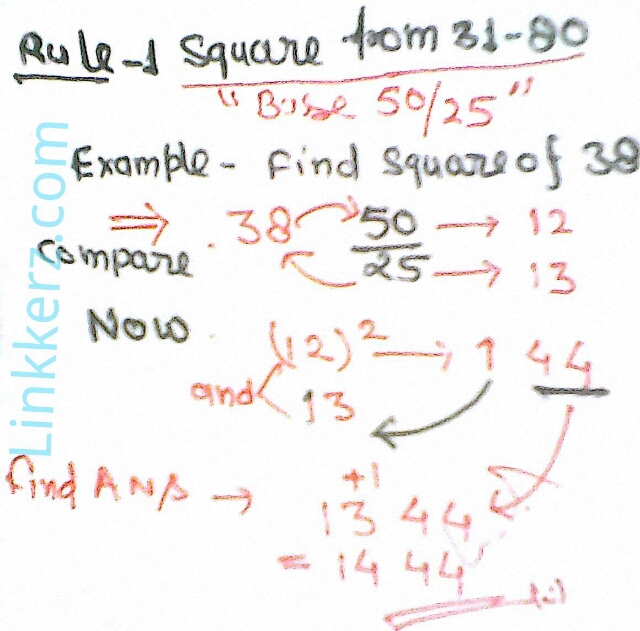 Rule-1 Square from 31-80
"Base 50/25"
Example - Find Square of 38
⇒ 38 50 → 12
Compare 25 → 13
Now (12)² → 1 44
and 13
+1
Find Ans → 13 44
= 14 44
Linkkerz.com